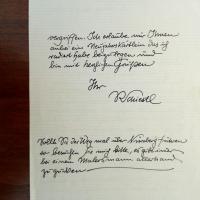 vergriffen. Ich erlaube mir Ihnen
anbei ein Neujahrskärtlein das ich
radiert habe beizulegen und
bin mit herzlichen Grüßen
Ihr
Sollte Sie der Weg mal über Nürnberg führen
so besuchen Sie mich bitte, es gibt immer
bei einem Malersmann allerhand
zu gucken